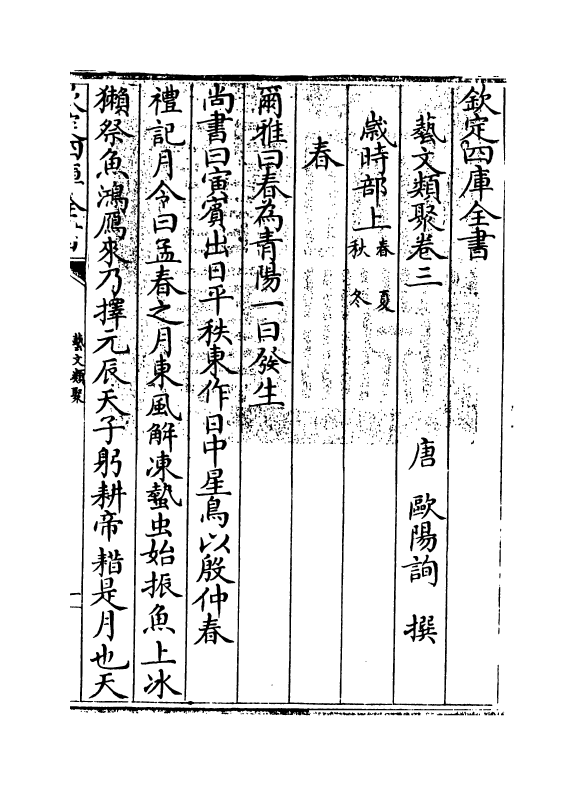 欽定四庫全書
藝文類聚卷三
唐 歐陽詢 撰
歲時部上 春 夏 秋 冬
春
爾雅曰春為青陽一曰發生
尚書曰寅賓出日平秩東作日中星鳥以殷仲春
禮記月令曰孟春之月東風解凍蟄虫始振魚上冰
獺祭魚鴻鴈來乃擇元辰天子躬耕帝耤是月也天
欽定四庫全書
藝文類聚
一